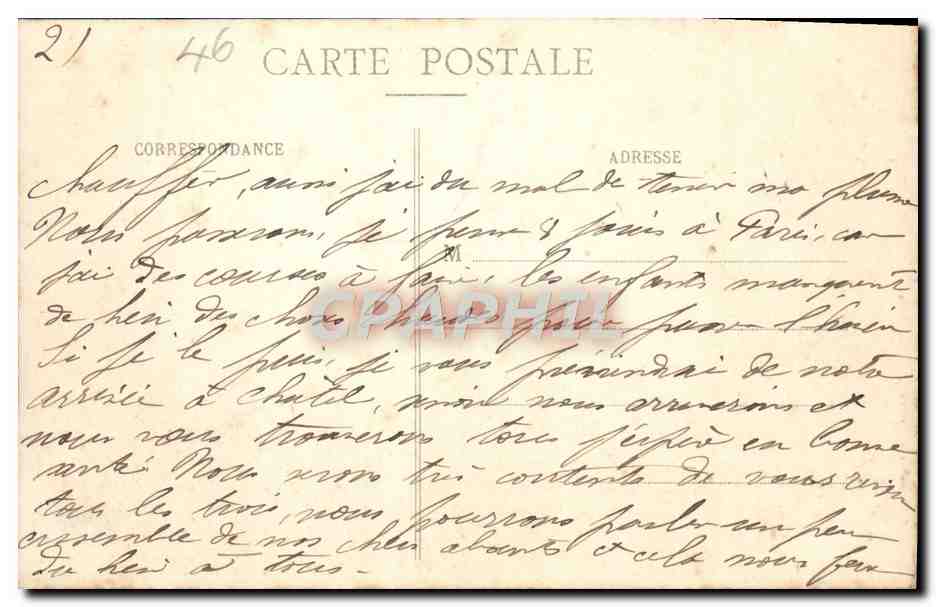 21
46
CARTE POSTALE
CORRESPONDANCE
ADRESSE
M
CPAPHIL
chauffer, aussi j'ai du mal de tenir ma plume
Nous passerons, je pense 8 jours à Paris, car
j'ai des courses à faire, les enfants manquent
de bien des choses chaudes pour passer l'hiver
Si je le puis, je vous préviendrai de notre
arrivée à Châtel, sinon nous arriverons et
nous vous trouverons tous j'espère en bonne
santé Nous serons très contents de vous revoir
tous les trois, nous pourrons parler un peu
ensemble de nos chers absents et cela nous fera
du bien à tous.